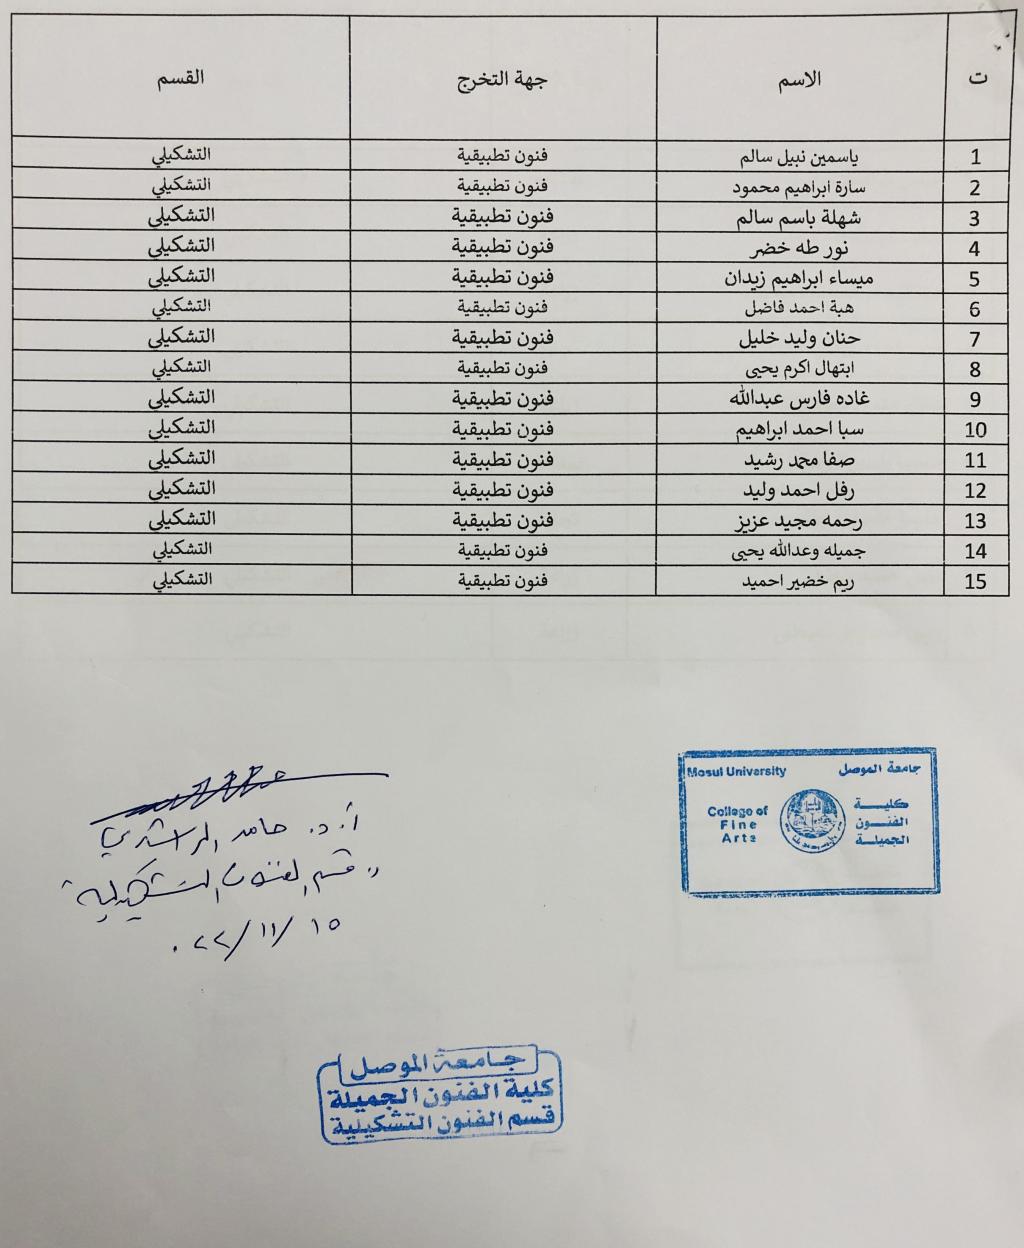 ت الاسم جهة التخرج القسم
1 ياسمين نبيل سالم فنون تطبيقية التشكيلي
2 سارة ابراهيم محمود فنون تطبيقية التشكيلي
3 شهلة باسم سالم فنون تطبيقية التشكيلي
4 نور طه خضر فنون تطبيقية التشكيلي
5 ميساء ابراهيم زيدان فنون تطبيقية التشكيلي
6 هبة احمد فاضل فنون تطبيقية التشكيلي
7 حنان وليد خليل فنون تطبيقية التشكيلي
8 ابتهال اكرم يحيى فنون تطبيقية التشكيلي
9 غاده فارس عبدالله فنون تطبيقية التشكيلي
10 سبا احمد ابراهيم فنون تطبيقية التشكيلي
11 صفا محمد رشيد فنون تطبيقية التشكيلي
12 رفل احمد وليد فنون تطبيقية التشكيلي
13 رحمه مجيد عزيز فنون تطبيقية التشكيلي
14 جميله وعدالله يحيى فنون تطبيقية التشكيلي
15 ريم خضير احميد فنون تطبيقية التشكيلي
جامعة الموصل Mosul University
كلية College of
الفنون Fine
الجميلة Arts
أ.د. حامد الراشدي
ر. قسم الفنون التشكيلية
١٥ /١١ /٢٢٠
جامعة الموصل
كلية الفنون الجميلة
قسم الفنون التشكيلية